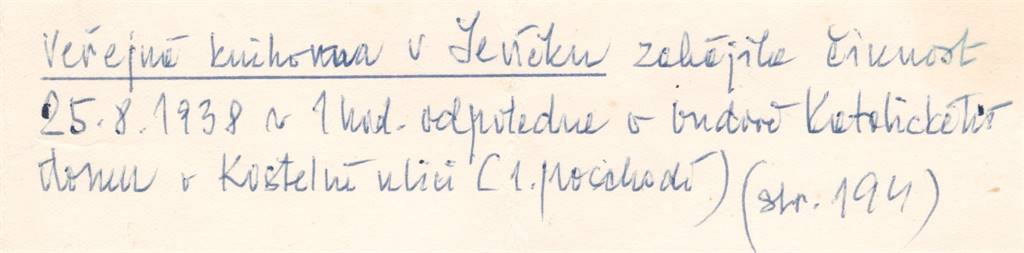 Veřejná knihovna v Jevíčku zahájila činnost
25.8.1938 v 1 hod. odpoledne v budově Katolického
domu v Kostelní ulici (1. poschodí) (str. 194)